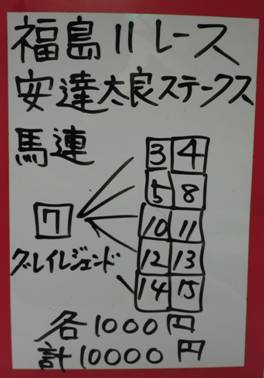 福島11レース
安達太良ステークス
馬連
3 4
5 8
7
10 11
グレイレジェンド
12 13
14 15
各1000円
計10000円